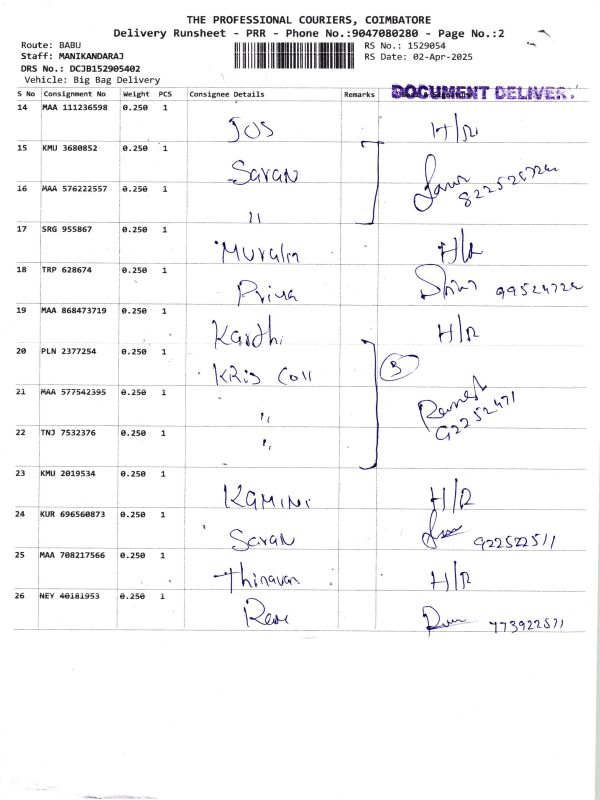 THE PROFESSIONAL COURIERS, COIMBATORE
Delivery Runsheet - PRR - Phone No.:9047080280 - Page No.:2
Route: BABU
Staff: MANIKANDARAJ
DRS No.: DCJB152905402
Vehicle: Big Bag Delivery
RS No.: 1529054
RS Date: 02-Apr-2025
S No Consignment No Weight PCS Consignee Details Remarks
DOCUMENT DELIVER.
14 MAA 111236598 0.250 1 JOS H/R
15 KMU 3680852 0.250 1 Savan
16 MAA 576222557 0.250 1 11
17 SRG 955867 0.250 1 Murali H/R
18 TRP 628674 0.250 1 Priya
19 MAA 868473719 0.250 1 Karthi H/R
20 PLN 2377254 0.250 1 KRIS Coll
3
21 MAA 577542395 0.250 1 ,, Ramesh
92252471
22 TNJ 7532376 0.250 1 ,,
23 KMU 2019534 0.250 1 KAMINI H/R
24 KUR 696560873 0.250 1 Savan 922522511
25 MAA 708217566 0.250 1 Thinavan H/R
26 NEY 40181953 0.250 1 773922511